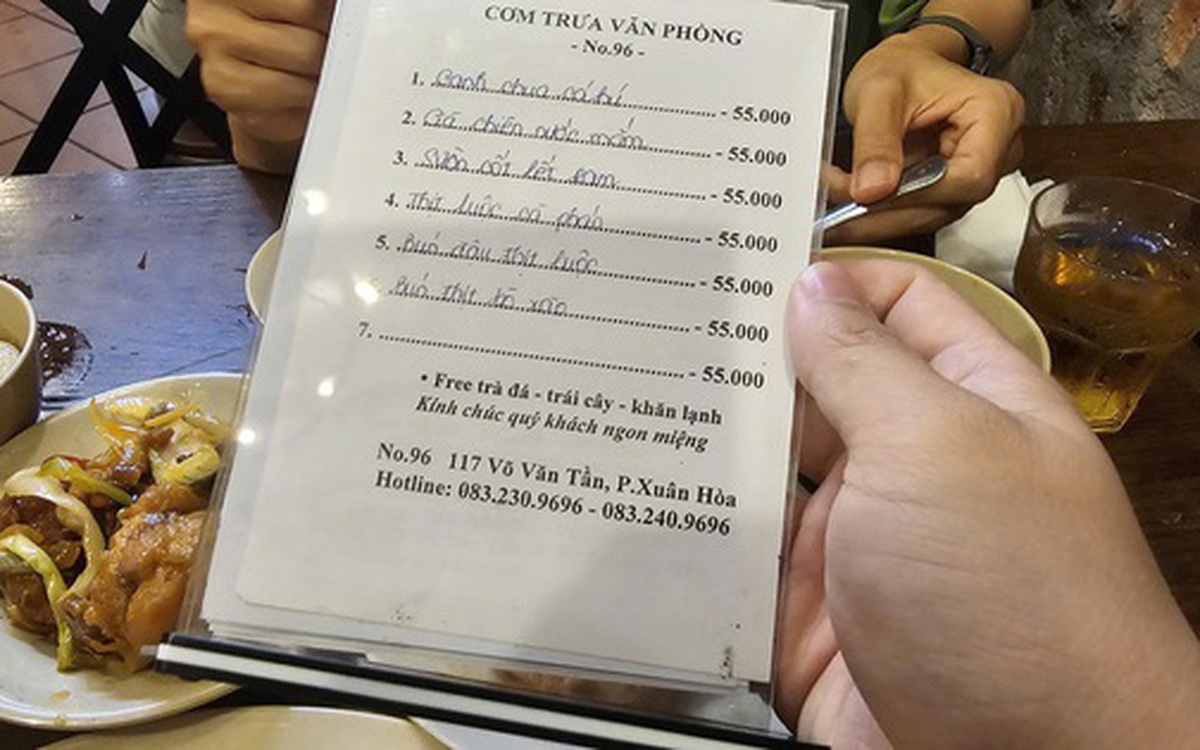 CƠM TRƯA VĂN PHÒNG
- No.96 -
1. Canh chua cá hú - 55.000
2. Gà chiên nước mắm - 55.000
3. Sườn cốt lết ram - 55.000
4. Thịt luộc cà pháo - 55.000
5. Bún đậu thịt luộc - 55.000
6. Bún thịt bò xào - 55.000
7. - 55.000
• Free trà đá - trái cây - khăn lạnh
Kính chúc quý khách ngon miệng
No.96 117 Võ Văn Tần, P.Xuân Hòa
Hotline: 083.230.9696 - 083.240.9696